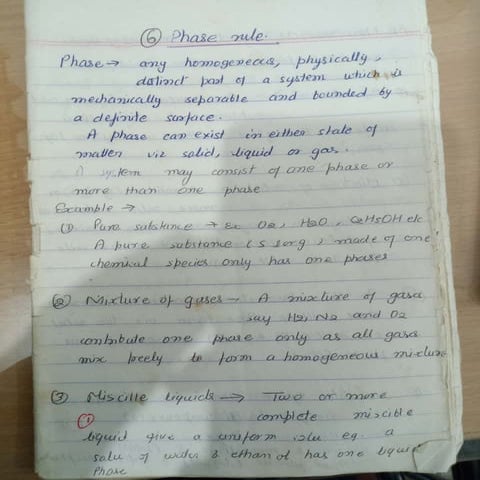 ⑥ Phase rule.
Phase → any homogeneous, physically,
distinct part of a system which is
mechanically separable and bounded by
a definite surface.
A phase can exist in either state of
matter viz solid, liquid or gas.
A system may consist of one phase or
more than one phase.
Example →
(1) Pure substance → Ex O2, H2O, C2H5OH etc
A pure substance (s lorg) made of one
chemical species only has one phases
② Mixture of gases - A mixture of gases
say H2, N2 and O2
contribute one phase only as all gases
mix freely to form a homogeneous mixture
③ Miscille liquids → Two or more
① complete miscible
liquid give a uniform solu eg. a
solu of water & ethanol has one liquid
Phase